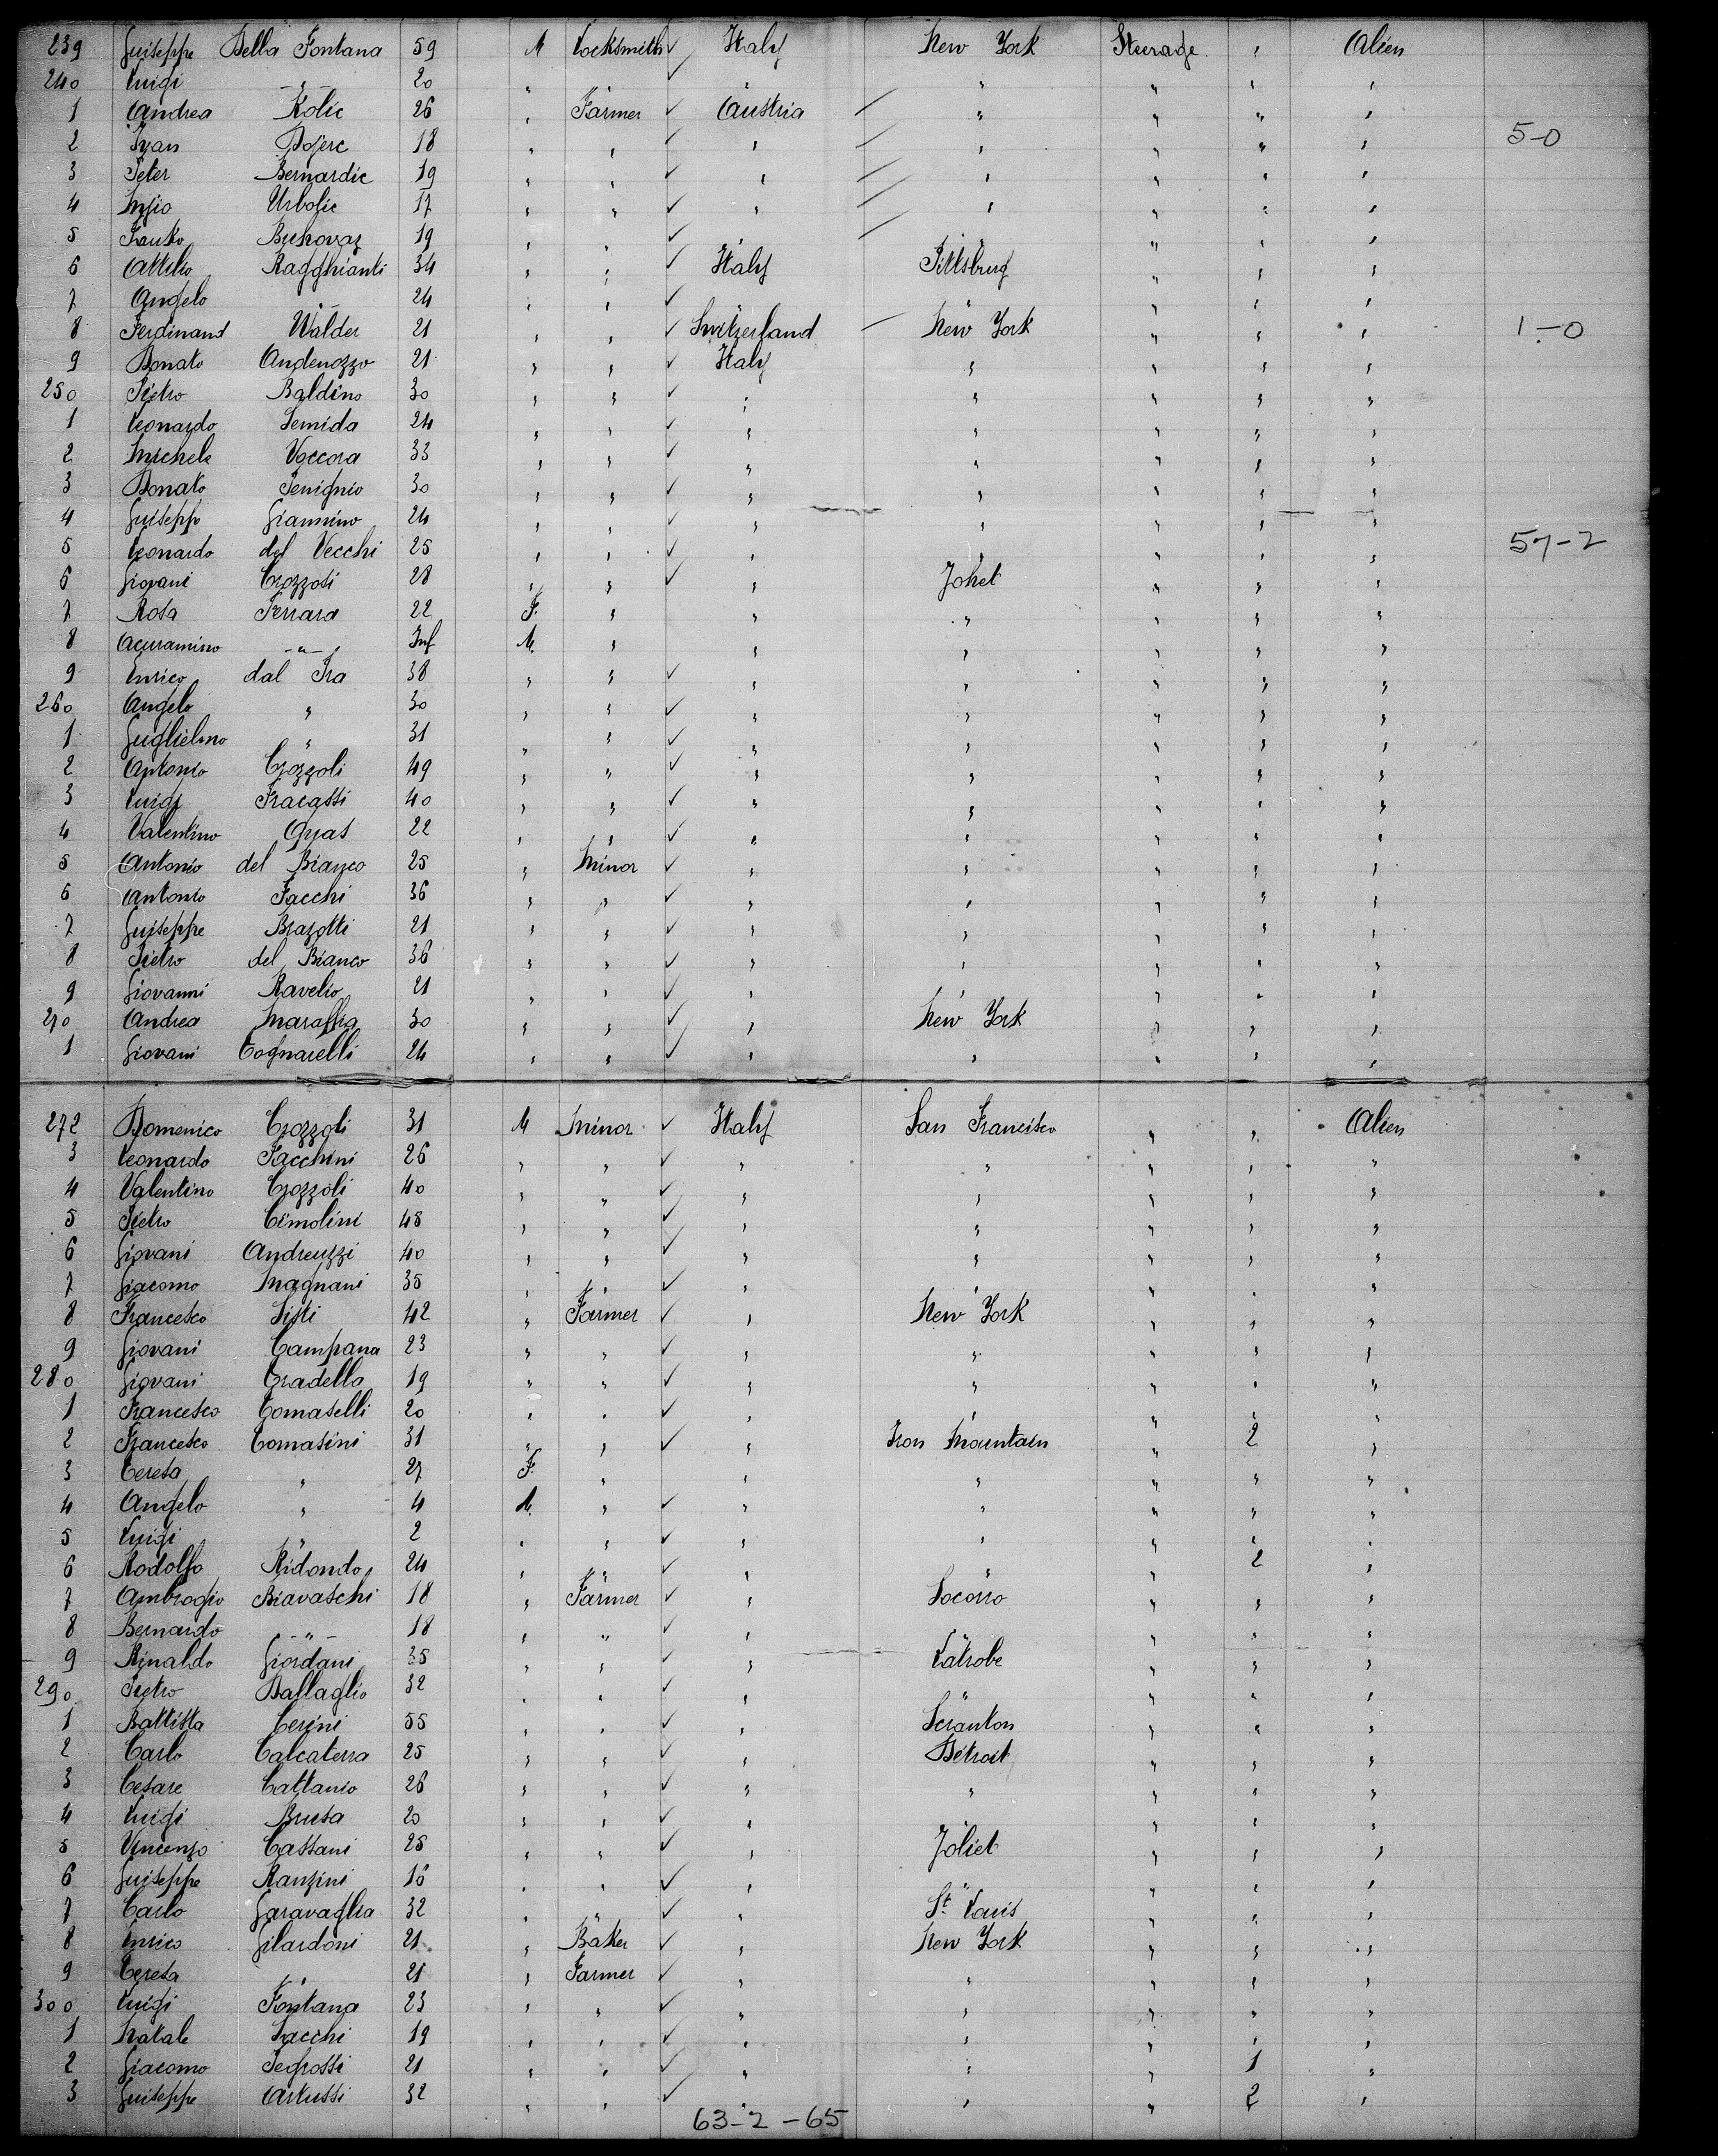 239 Guiseppe Della Fontana 59 M Locksmith ✓ Italy New York Steerage " Alien
240 Luigi —"— 20 " " ✓ " " " " "
1 Andrea Kolic 26 " Farmer ✓ Austria " " " "
2 Ivan Bojerc 18 " " ✓ " " " " " 5-0
3 Peter Bernardic 19 " " ✓ " " " " "
4 Mijio Urbolic 17 " " ✓ " " " " "
5 Janko Bukovaz 19 " " ✓ " " " " "
6 Attilio Ragghianti 34 " " ✓ Italy Pittsburg " " "
7 Angelo —"— 24 " " ✓ " " " " "
8 Ferdinand Walder 21 " " ✓ Switzerland New York " " " 1-0
9 Donato Andenozzo 21 " " ✓ Italy " " " "
250 Pietro Baldino 30 " " ✓ " " " " "
1 Leonardo Semida 24 " " ✓ " " " " "
2 Michele Vaccora 33 " " ✓ " " " " "
3 Donato Penignio 30 " " ✓ " " " " "
4 Guiseppe Giannino 24 " " ✓ " " " " "
5 Leonardo del Vecchi 25 " " ✓ " " " " " 57-2
6 Giovani Crozzosi 28 " " ✓ " Joliet " " "
7 Rosa Ferrara 22 F. " " " " " "
8 —"— Inf M. " " " " " "
9 Enrico dal Pra 38 " " ✓ " " " " "
260 Angelo " 30 " " ✓ " " " " "
1 Guglielmo " 31 " " ✓ " " " " "
2 Antonio Crozzoli 49 " " ✓ " " " " "
3 Luigi Fracassi 40 " " ✓ " " " " "
4 Valentino 22 " " ✓ " " " " "
5 Antonio del Bianco 25 " Minor ✓ " " " " "
6 Antonio Facchi 36 " " ✓ " " " " "
7 Guiseppe Brazotti 21 " " ✓ " " " " "
8 Pietro del Bianco 36 " " ✓ " " " " "
9 Giovanni Ravelio 21 " " ✓ " " " " "
270 Andrea Maraffia 30 " " ✓ " New York " " "
1 Giovani Tognarelli 24 " " ✓ " " " " "
272 Domenico Crozzoli 31 M Minor ✓ Italy San Francisco " " Alien
3 Leonardo Facchini 26 " " ✓ " " " " "
4 Valentino Crozzoli 40 " " ✓ " " " " "
5 Pietro Cimolini 45 " " ✓ " " " " "
6 Giovani Andreuzzi 40 " " ✓ " " " " "
7 Giacomo Magnani 35 " " ✓ " " " " "
8 Francesco Sisti 42 " Farmer ✓ " New York " " "
9 Giovani Campana 23 " " ✓ " " " " "
280 Giovani Gradella 19 " " ✓ " " " " "
1 Francesco Tomaselli 20 " " ✓ " " " " "
2 Francesco Tomasini 31 " " ✓ " Iron Mountain " 2 "
3 Teresa " 27 F. " " " " " "
4 Angelo " 4 M. " ✓ " " " " "
5 Luigi " 2 " " ✓ " " " " "
6 Rodolfo Ridondo 24 " " ✓ " " " 2 "
7 Ambrogio Biavaschi 18 " Farmer ✓ " Socorro " " "
8 Bernardo —"— 18 " " ✓ " " " " "
9 Rinaldo Giordani 35 " " ✓ " Latrobe " " "
290 Pietro Battaglio 32 " " ✓ " " " " "
1 Battista Cerini 55 " " ✓ " Scranton " " "
2 Carlo Calcaterra 25 " " ✓ " Detroit " " "
3 Cesare Cattanio 26 " " ✓ " " " " "
4 Luigi Brusa 20 " " ✓ " " " " "
5 Vincenzo Cassani 25 " " ✓ " Joliet " " "
6 Guiseppe Ranzini 16 " " ✓ " " " " "
7 Carlo Garavaglia 32 " " ✓ " St. Louis " " "
8 Enrico Gilardoni 21 " Baker ✓ " New York " " "
9 Teresa " 21 " Farmer ✓ " " " " "
300 Luigi Fontana 23 " " ✓ " " " " "
1 Natale Sacchi 19 " " ✓ " " " " "
2 Giacomo Pegrossi 21 " " ✓ " " " 1 "
3 Guiseppe Artussi 32 " " ✓ " " " 2 "
63-2-65